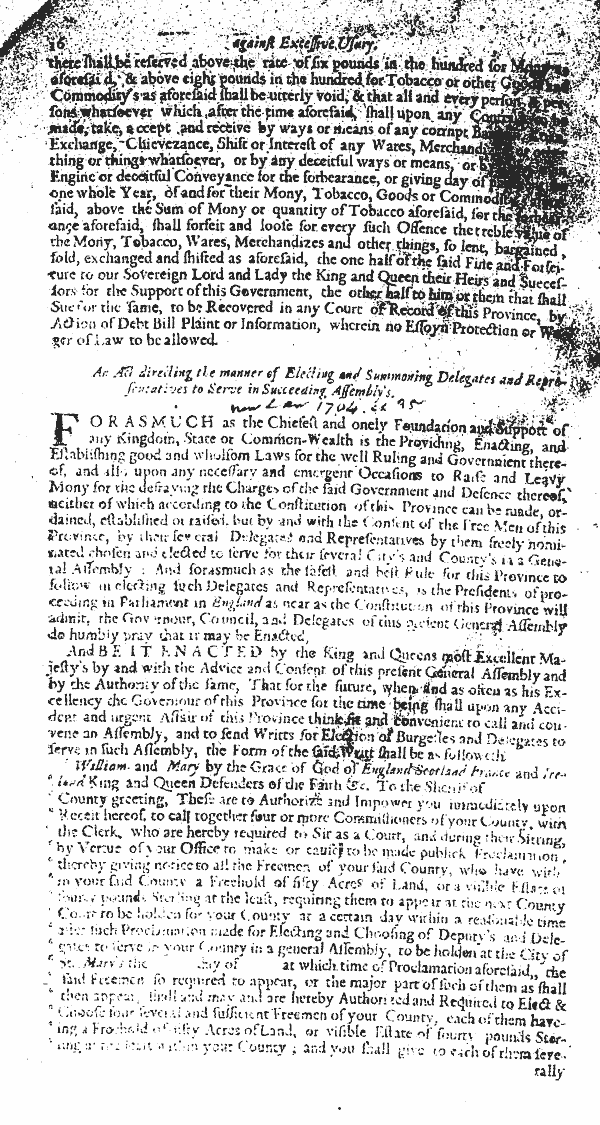 16 against Excessive Usury.
there shall be reserved above the rate of six pounds in the hundred for
aforesaid, & above eight pounds in the hundred for Tobacco or other
Commodity's as aforesaid shall be utterly void, & that all and every person
sons whatsoever which after the time aforesaid, shall upon any
made, take, accept and receive by ways or means of any corrupt
Exchange, Chievezance, Shift or Interest of any Wares,
thing or things whatsoever, or by any deceitful ways or means, or
Engine or deceitful Conveyance for the forbearance, or giving day of
one whole Year, of and for their Mony, Tobacco, Goods or
said, above the Sum of Mony or quantity of Tobacco aforesaid, for the
ance aforesaid, shall forfeit and loose for every such Offence the treble value of
the Mony, Tobacco, Wares, Merchandizes and other things, so lent, bargained,
sold, exchanged and shifted as aforesaid, the one half of the said Fine and Forfei-
ture to our Sovereign Lord and Lady the King and Queen their Heirs and Succes-
sors for the Support of this Government, the other half to him or them that shall
Sue for the same, to be Recovered in any Court of Record of this Province, by
Action of Debt Bill Plaint or Information, wherein no Essoyn Protection or Wa-
ger of Law to be allowed.
An Act directing the manner of Electing and Summoning Delegates and Repre-
sentatives to Serve in Succeeding Assembly's.
new Law 1704. 95
FORASMUCH as the Chiefest and onely Foundation and Support of
any Kingdom, State or Common-Wealth is the Providing, Enacting, and
Establishing good and wholsom Laws for the well Ruling and Government there-
of, and all upon any necessary and emergent Occasions to Raise and Leavy
Mony for the defraying the Charges of the said Government and Defence thereof,
neither of which according to the Constitution of this Province can be made, or-
dained, established or raised, but by and with the Consent of the Free Men of this
Province, by their several Delegates and Representatives by them freely nomi-
nated chosen and elected to serve for their several City's and County's in a Gene-
ral Assembly : And forasmuch as the safest and best Rule for this Province to
follow in electing such Delegates and Representatives, is the Presidents of pro-
ceeding in Parliament in England as near as the Constitution of this Province will
admit, the Governour, Council, and Delegates of this present General Assembly
do humbly pray that it may be Enacted,
And BE IT ENACTED by the King and Queens most Excellent Ma-
jesty's by and with the Advice and Consent of this present General Assembly and
by the Authority of the same, That for the future, when and as often as his Ex-
cellency the Governour of this Province for the time being shall upon any Acci-
dent and urgent Affair of this Province think fit and convenient to call and con-
vene an Assembly, and to send Writts for Election of Burgesses and Delegates to
serve in such Assembly, the Form of the said Writt shall be as followeth
William and Mary by the Grace of God of England Scotland France and Ire-
" land King and Queen Defenders of the Faith &c. To the Sheriff of
" County greeting, These are to Authorize and Impower you immediately upon
" Receit hereof, to call together four or more Commissioners of your County, with
" the Clerk, who are hereby required to Sit as a Court, and during their Sitting,
" by Vertue of your Office to make or cause to be made publick Proclamation,
" thereby giving notice to all the Freemen of your said County, who have with
" in your said County a Freehold of fifty Acres of Land, or a visible Estate of
" fourty pounds Sterling at the least, requiring them to appear at the next County
" Court to be holden for your County at a certain day within a reasonable time
" after such Proclamation made for Electing and Choosing of Deputy's and Dele-
" gates to serve in your County in a general Assembly, to be holden at the City of
" St. Mary's the day of at which time of Proclamation aforesaid,, the
" said Freemen so required to appear, or the major part of such of them as shall
" then appear, shall and may and are hereby Authorized and Required to Elect &
" Choose four several and sufficient Freemen of your County, each of them have-
" ing a Freehold of fifty Acres of Land, or visible Estate of fourty pounds Ster-
" ling at the least within your County ; and you shall give to each of them seve-
rally